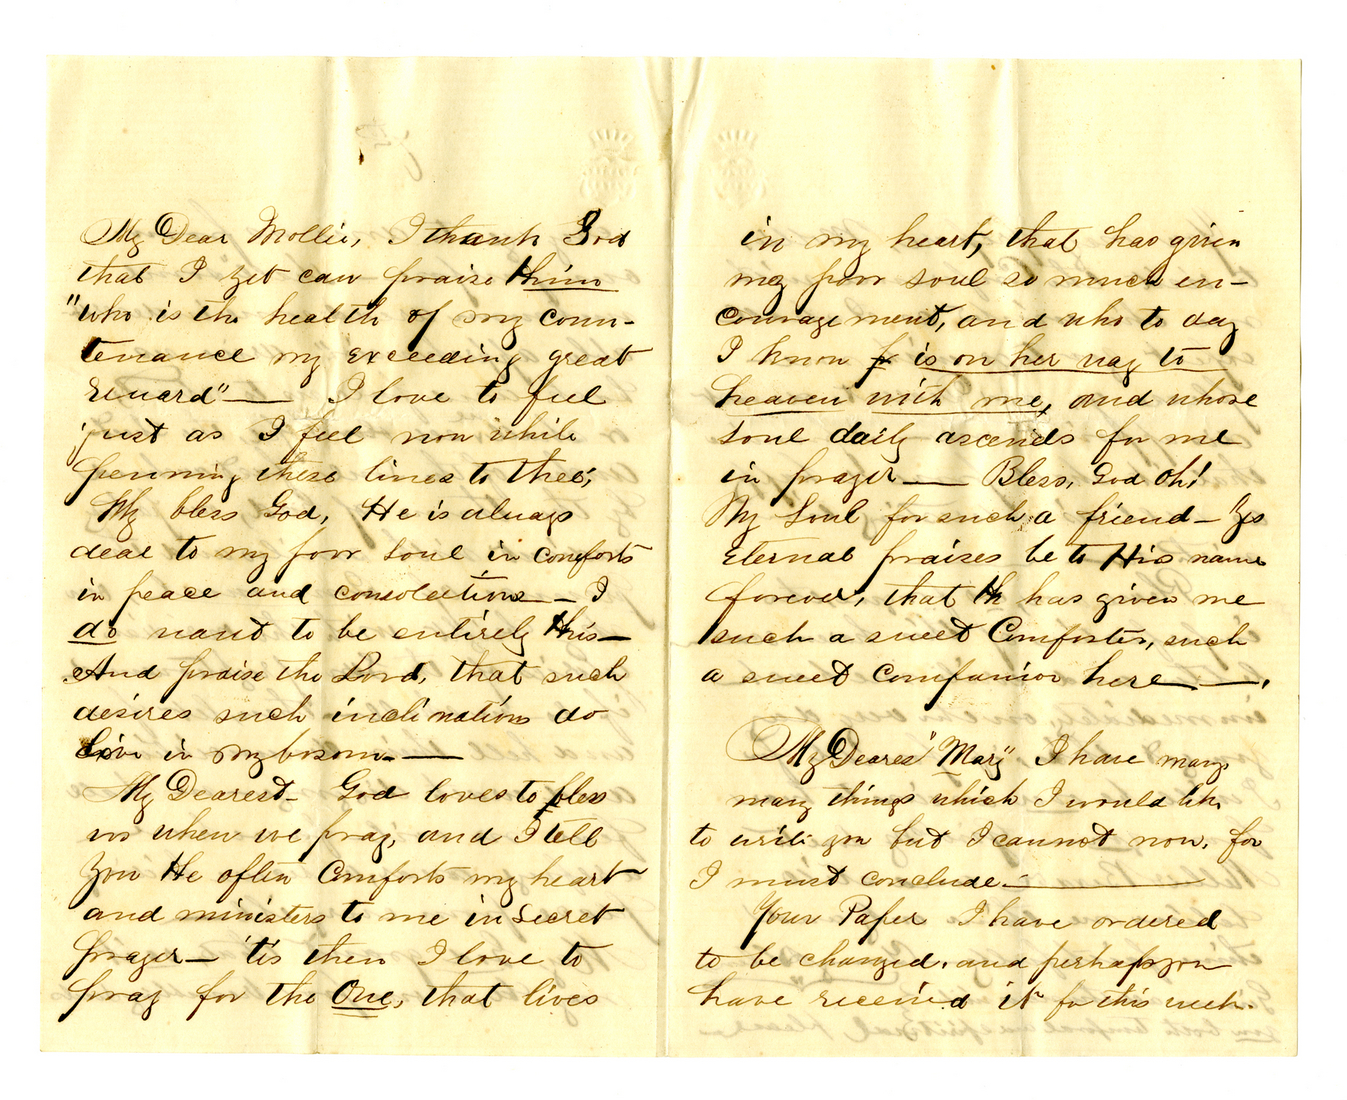 My Dear Mollie, I thank God
that I yet can praise Him
"who is the health of my coun-
tenance my exceeding great
reward"— I love to feel
just as I feel now while
penning these lines to thee;
My bless God, He is always
dear to my poor soul in comforts
in peace and consolations— I
do want to be entirely His—
And praise the Lord, that such
desires such inclinations do
live in my bosom.—
My Dearest— God loves to bless
us when we pray, and I tell
you He often comforts my heart
and ministers to me in secret
prayer— 'tis then I love to
pray for the One, that lives
in my heart, that has given
my poor soul so much en-
couragement, and who to day
I know is on her way to
heaven with me, and whose
soul daily ascends for me
in prayer— Bless, God Oh!
My Soul for such a friend—
eternal praises be to His name
forever, that He has given me
such a sweet Comforter, such
a sweet companion here—.
My Dearest "Mary" I have many
many things which I would like
to write you but I cannot now, for
I must conclude.—
Your Paper I have ordered
to be changed. and perhaps you
have received it for this week.